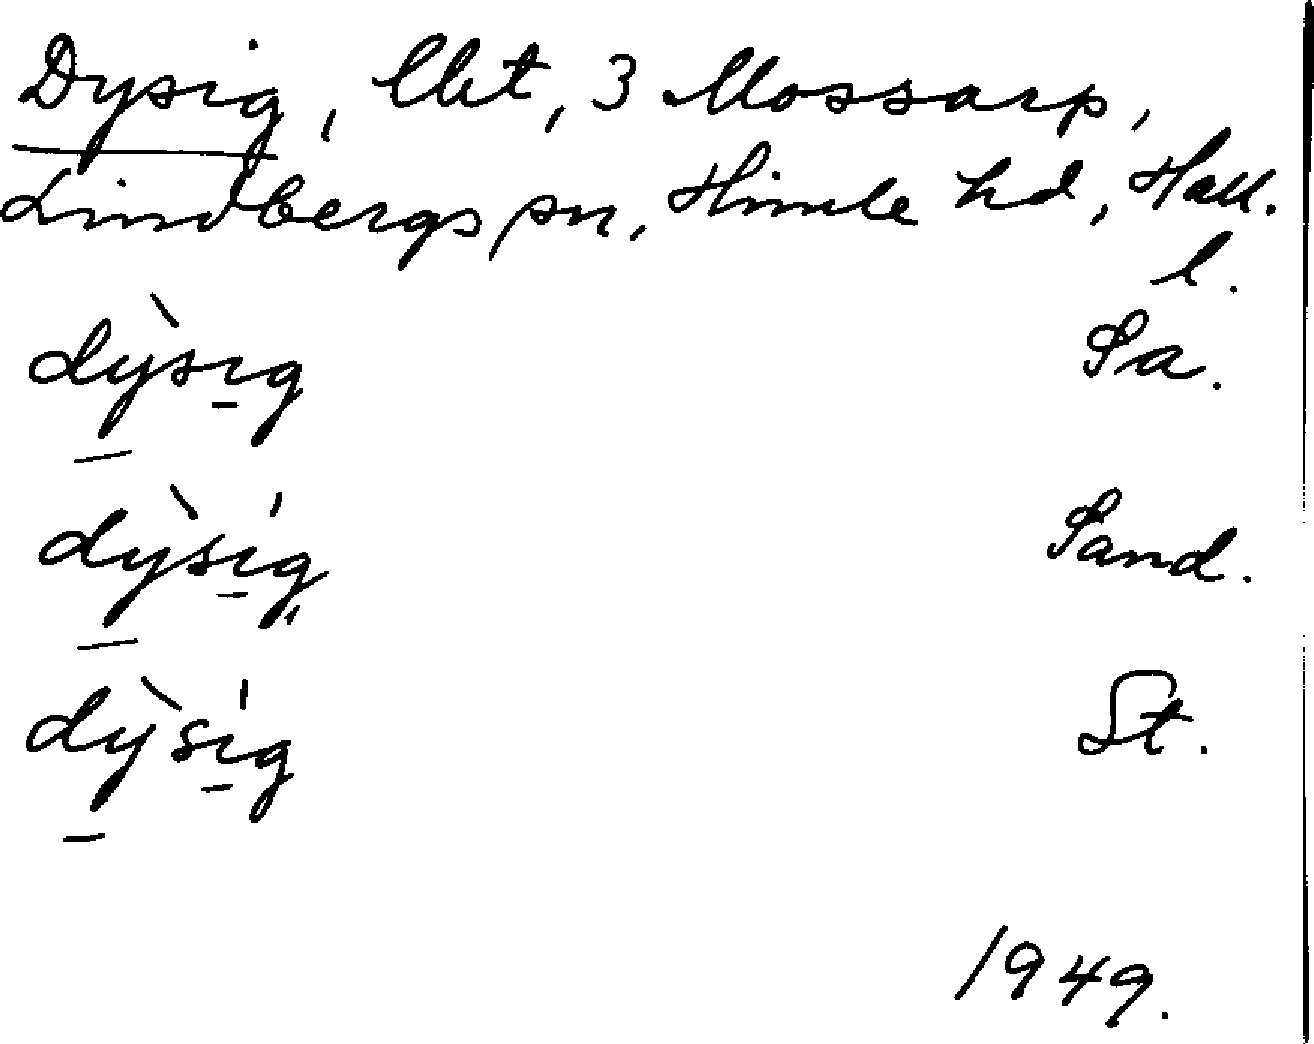 Dysig, lht, 3 Mossarp,
Lindbergs sn, Himle hd, Hall.
l.
dỳ̠si̠g Sa.
dỳ̠sí̠g Sand.
dỳ̠sí̠g St.
1949.